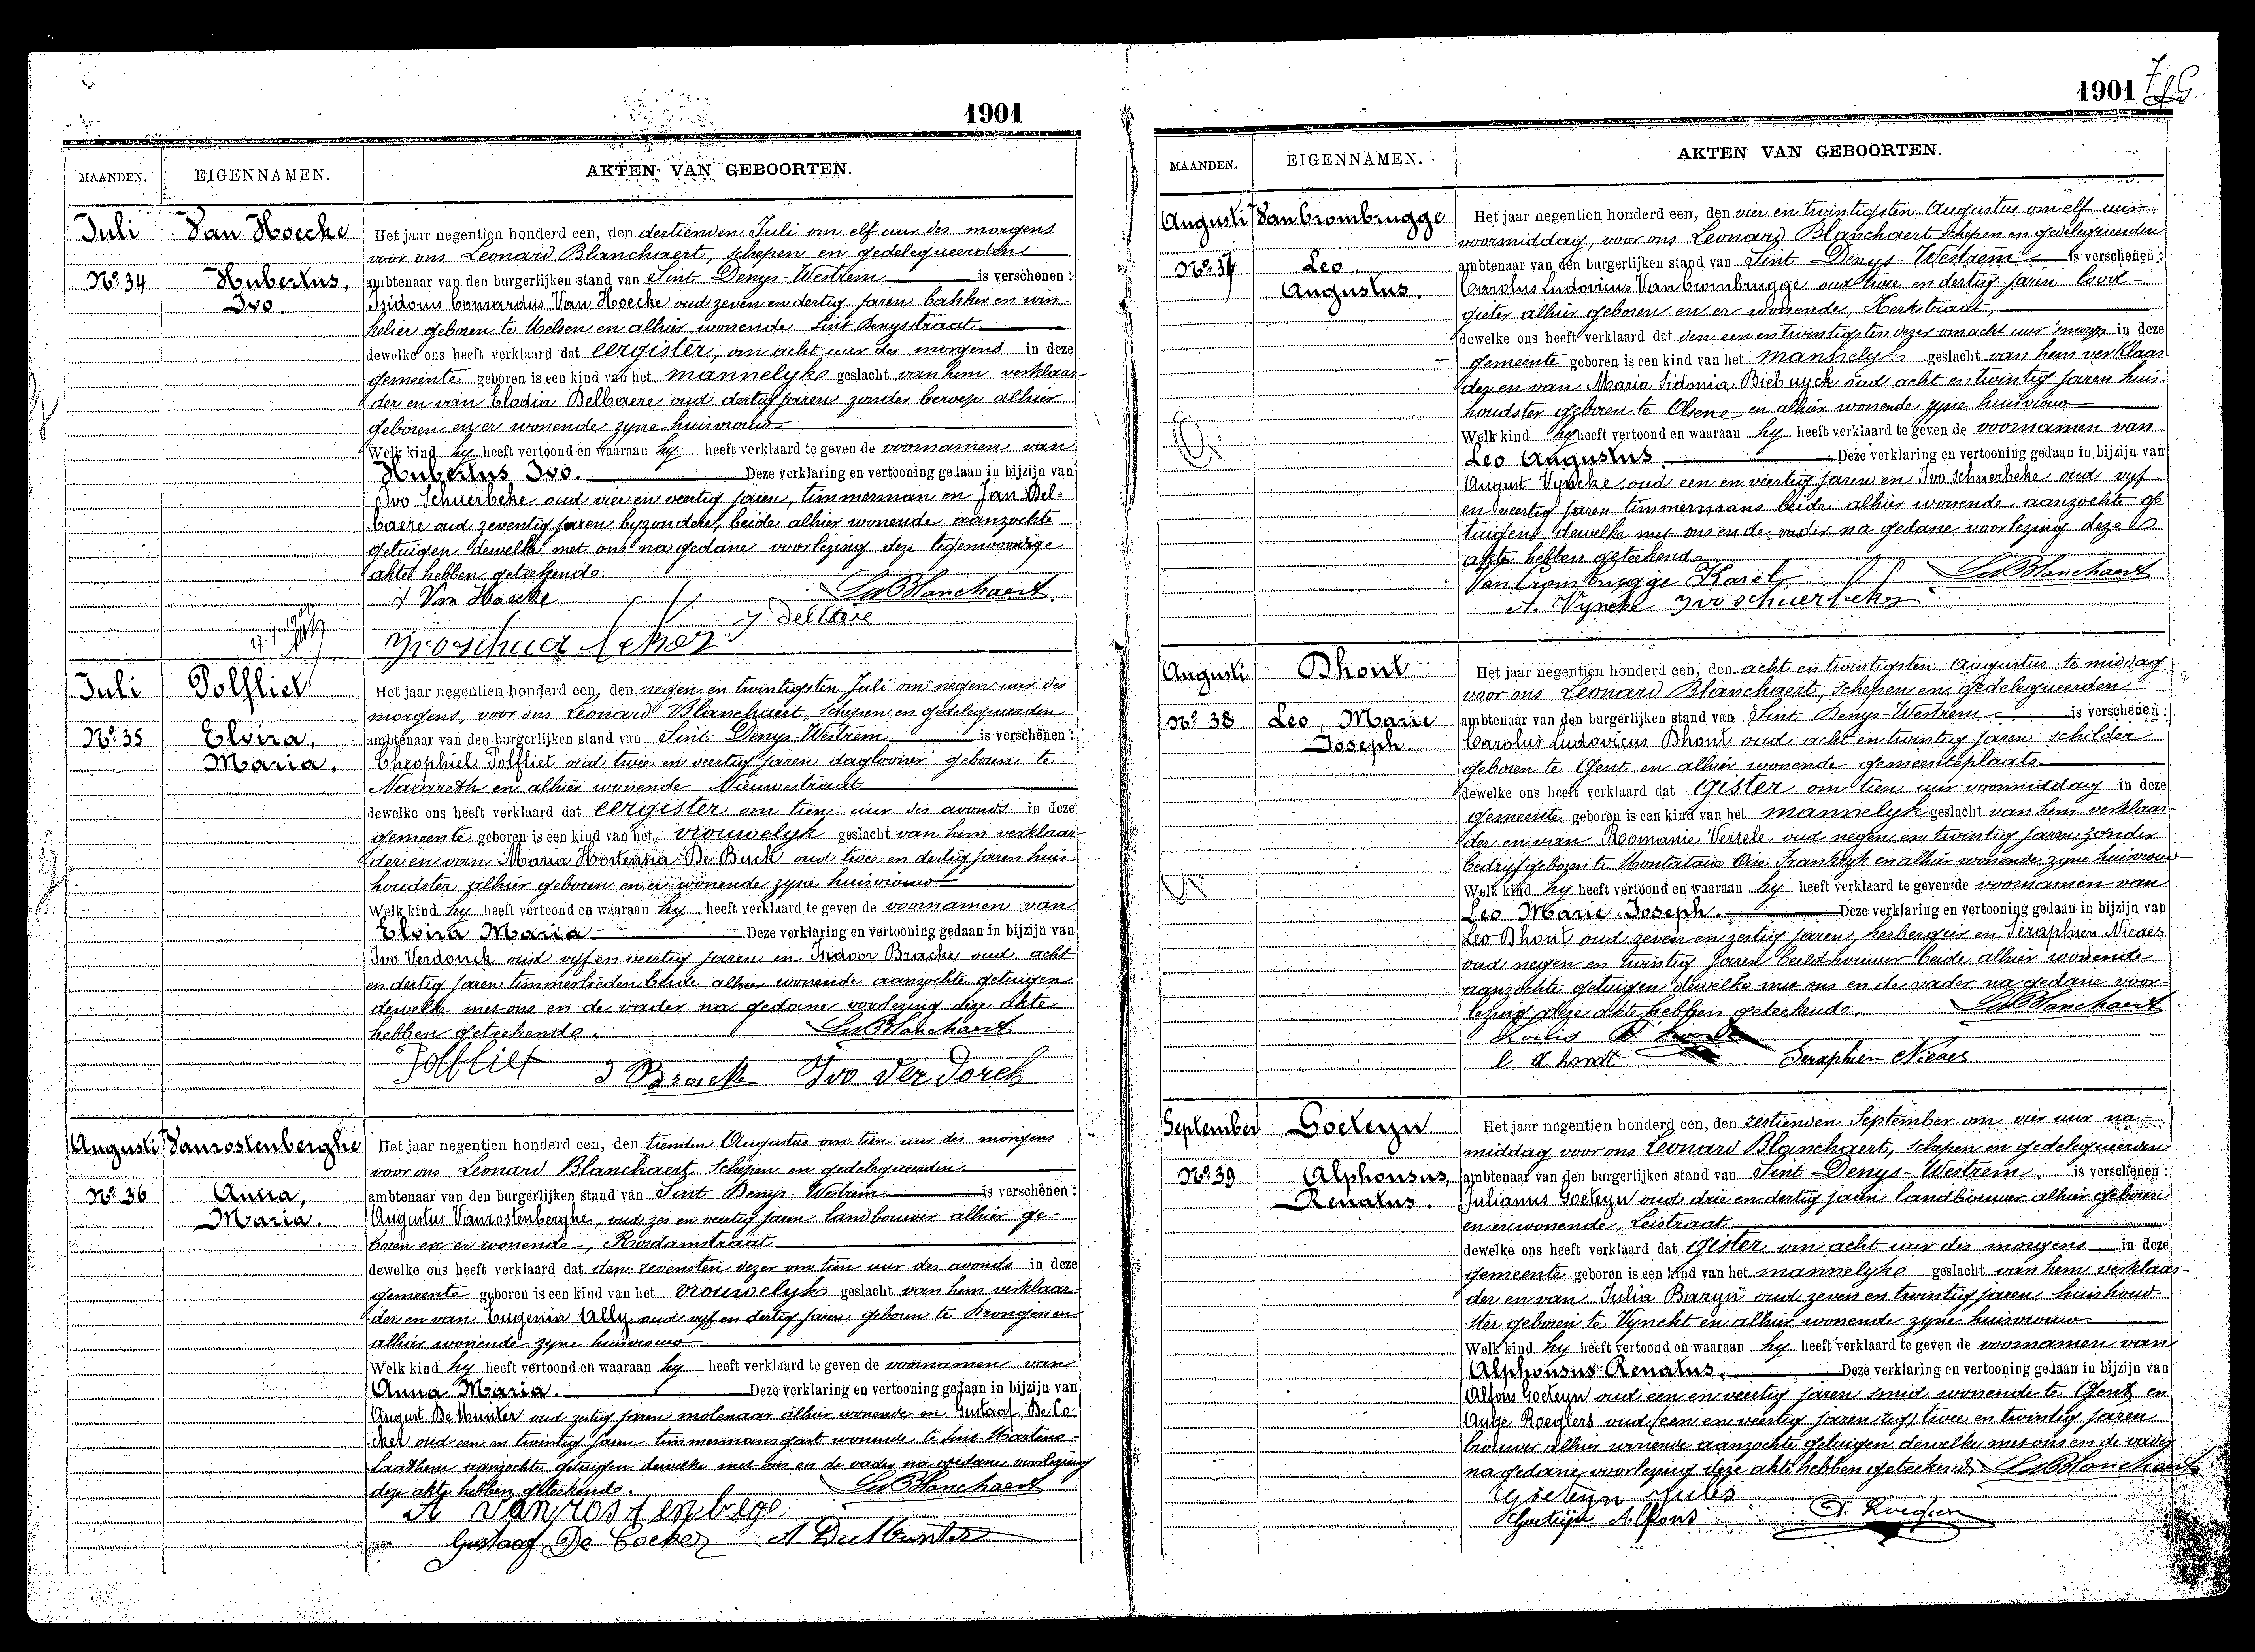 1901
MAANDEN. EIGENNAMEN. AKTEN VAN GEBOORTEN.
Juli Van Hoecke
Nº 34 Hubertus,
Ivo.
Het jaar negentien honderd een, den dertienden Juli om elf uur des morgens
voor ons Leonard Blanchaert, schepen en gedelegueerden
ambtenaar van den burgerlijken stand van Sint Denys-Westrem is verschenen :
Isidorus Conrardus Van Hoecke oud zeven en dertig jaren bakker en win-
kelier geboren te Melsen en alhier wonende Sint Denysstraat
dewelke ons heeft verklaard dat eergister, om acht uur des morgens in deze
gemeente geboren is een kind van het mannelyke geslacht van hem verklaar-
der en van Elodia Delbaere oud dertig jaren zonder beroep alhier
geboren en er wonende zyne huisvrouw
Welk kind hy heeft vertoond en waaraan hy heeft verklaard te geven de voornamen van
Hubertus Ivo. Deze verklaring en vertooning gedaan in bijzijn van
Ivo Schuerbeke oud vier en veertig jaren, timmerman en Jan Del-
baere oud zeventig jaren byzondere, beide alhier wonende aanzochte
getuigen dewelke met ons na gedane voorlezing deze tegenwoordige
akte hebben geteekend.
I Van Hoecke Ln Blanchaert
J. Delbaere
Ivo schuerbeke
Juli Polfliet
Nº 35 Elvira,
Maria.
Het jaar negentien honderd een, den negen en twintigsten Juli om negen uur des
morgens, voor ons Leonard Blanchaert, schepen en gedelegueerden
ambtenaar van den burgerlijken stand van Sint Denys-Westrem is verschenen :
Theophiel Polfliet oud twee en veertig jaren daglooner geboren te
Nazareth en alhier wonende Nieuwestraat
dewelke ons heeft verklaard dat eergister om tien uur des avonds in deze
gemeente geboren is een kind van het vrouwelyk geslacht van hem verklaar-
der en van Maria Hortensia De Buck oud twee en dertig jaren huis-
houdster alhier geboren en er wonende zyne huisvrouw
Welk kind hy heeft vertoond en waaraan hy heeft verklaard te geven de voornamen van
Elvira Maria Deze verklaring en vertooning gedaan in bijzijn van
Ivo Verdonck oud vijf en veertig jaren en Isidoor Bracke oud acht
en dertig jaren timmerlieden beide alhier wonende aanzochte getuigen
dewelke met ons en de vader na gedane voorlezing deze akte
hebben geteekend. Ln Blanchaert
Polfliet I Brack Ivo Ver Donck
Augusti Vanrostenberghe
Nº 36 Anna,
Maria.
Het jaar negentien honderd een, den tienden Augustus om tien uur des morgens
voor ons Leonard Blanchaert schepen en gedelegueerden
ambtenaar van den burgerlijken stand van Sint Denys-Westrem is verschenen :
Augustus Vanrostenberghe, oud zes en veertig jaren landbouwer alhier ge-
boren en er wonende, Rosdamstraat
dewelke ons heeft verklaard dat den zevensten dezer om tien uur des avonds in deze
gemeente geboren is een kind van het vrouwelyk geslacht van hem verklaar-
der en van Eugenia Ally oud vyf en dertig jaren geboren te Drongen en
alhier wonende zyne huisvrouw
Welk kind hy heeft vertoond en waaraan hy heeft verklaard te geven de voornamen van
Anna Maria. Deze verklaring en vertooning gedaan in bijzijn van
August De Munter oud zestig jaren molenaar alhier wonende en Gustaaf De Co-
cker oud een en twintig jaren timmermansgast wonende te Sint Martens-
Laathem aanzochte getuigen dewelke met ons en de vader na gedane voorlezing
deze akte hebben geteekend. Ln Blanchaert
A Vanrostenbege
Gustaaf De Cocker A De Munter
1901
MAANDEN. EIGENNAMEN. AKTEN VAN GEBOORTEN.
Augusti Van Crombrugge
Nº 37 Leo,
Augustus.
Het jaar negentien honderd een, den vier en twintigsten Augustus om elf uur
voormiddag, voor ons Leonard Blanchaert schepen en gedelegueerden
ambtenaar van den burgerlijken stand van Sint Denys-Westrem is verschenen :
Carolus Ludovicus Van Crombrugge oud twee en dertig jaren lood-
gieter alhier geboren en er wonende, Kerkstraat,
dewelke ons heeft verklaard dat den een en twintigsten dezer om acht uur 's morg. in deze
gemeente geboren is een kind van het mannelyk geslacht van hem verklaar-
der en van Maria Sidonia Biebuyck oud acht en twintig jaren huis-
houdster geboren te Olsene en alhier wonende zyne huisvrouw
Welk kind hy heeft vertoond en waaraan hy heeft verklaard te geven de voornamen van
Leo Augustus. Deze verklaring en vertooning gedaan in bijzijn van
August Vyncke oud een en veertig jaren en Ivo Schuerbeke oud vyf
en veertig jaren timmermans beide alhier wonende aanzochte ge-
tuigens dewelke met ons en de vader na gedane voorlezing deze
akte hebben geteekend.
Van Crombrugge Karel Ln Blanchaert
A. Vyncke Ivo schuerbeke
Augusti Dhont
Nº 38 Leo, Marie
Joseph.
Het jaar negentien honderd een, den acht en twintigsten Augustus te middag
voor ons Leonard Blanchaert, schepen en gedelegueerden
ambtenaar van den burgerlijken stand van Sint Denys-Westrem is verschenen :
Carolus Ludovicus Dhont oud acht en twintig jaren schilder
geboren te Gent en alhier wonende gemeenteplaats
dewelke ons heeft verklaard dat gister om tien uur voormiddag in deze
gemeente geboren is een kind van het mannelyk geslacht van hem verklaar-
der en van Romanie Versele oud negen en twintig jaren zonder
bedryf geboren te Montataire Oise Frankryk en alhier wonende zyne huisvrouw
Welk kind hy heeft vertoond en waaraan hy heeft verklaard te geven de voornamen van
Leo Marie Joseph. Deze verklaring en vertooning gedaan in bijzijn van
Leo Dhont oud zeven en zestig jaren, herbergier en Seraphien Nicaes
oud negen en twintig jaren beeldhouwer beide alhier wonende
aanzochte getuigen dewelke met ons en de vader na gedane voor-
lezing deze akte hebben geteekend. Ln Blanchaert
Louis D'hondt
l d'hondt Seraphien Nicaes
September Goeteyn
Nº 39 Alphonsus,
Renatus.
Het jaar negentien honderd een, den zestienden September om vier uur na-
middag voor ons Leonard Blanchaert, schepen en gedelegueerden
ambtenaar van den burgerlijken stand van Sint Denys-Westrem is verschenen :
Julianus Goeteyn oud drie en dertig jaren landbouwer alhier geboren
en er wonende, Leistraat
dewelke ons heeft verklaard dat gister om acht uur des morgens in deze
gemeente geboren is een kind van het mannelyke geslacht van hem verklaar-
der en van Julia Baryn oud zeven en twintig jaren huishoud-
ster geboren te Vynckt en alhier wonende zyne huisvrouw
Welk kind hy heeft vertoond en waaraan hy heeft verklaard te geven de voornamen van
Alphonsus Renatus. Deze verklaring en vertooning gedaan in bijzijn van
Alfons Goeteyn oud een en veertig jaren smid wonende te Gent en
Roegiers oud (een en veertig jaren zeg) twee en twintig jaren
brouwer alhier wonende aanzochte getuigen dewelke met ons en de vader
na gedane voorlezing deze akte hebben geteekend Ln Blanchaert
Goeteyn Jules
Goeteyn Alfons